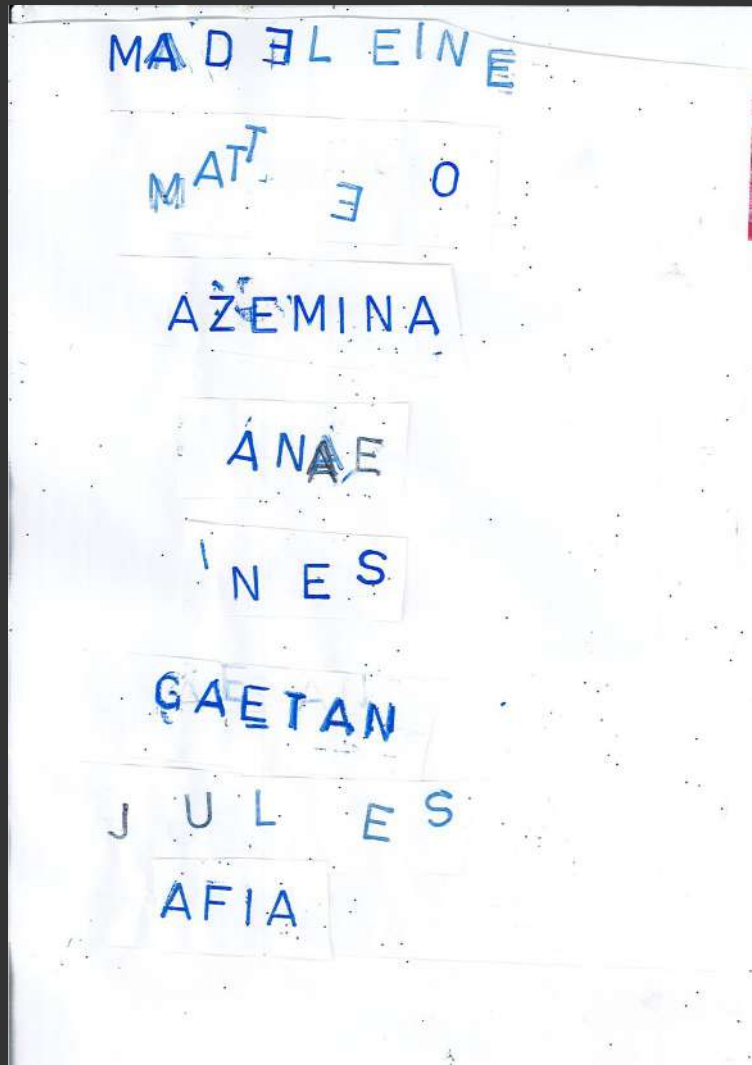 MADELEINE
MATTEO
AZEMINA
ANAE
INES
GAETAN
JULES
AFIA